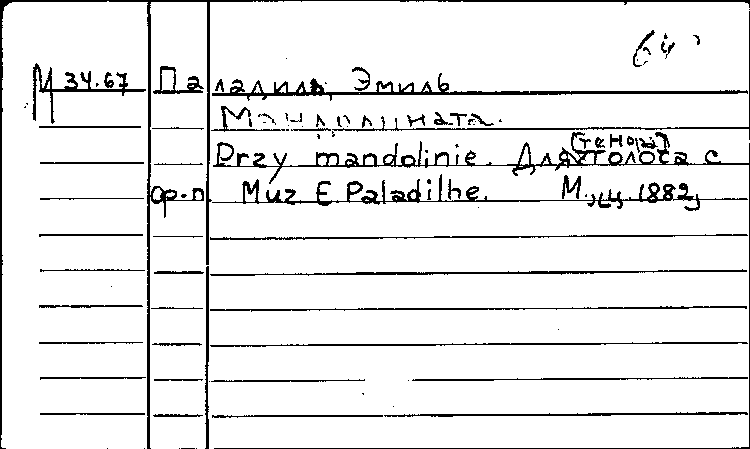 64
М 34.67 Паладиль, Эмиль
Мандолината.
Przy mandolinie. Для голоса с
[тенора]
ф.-п. Muz E Paladilhe. М., ц. 1882,